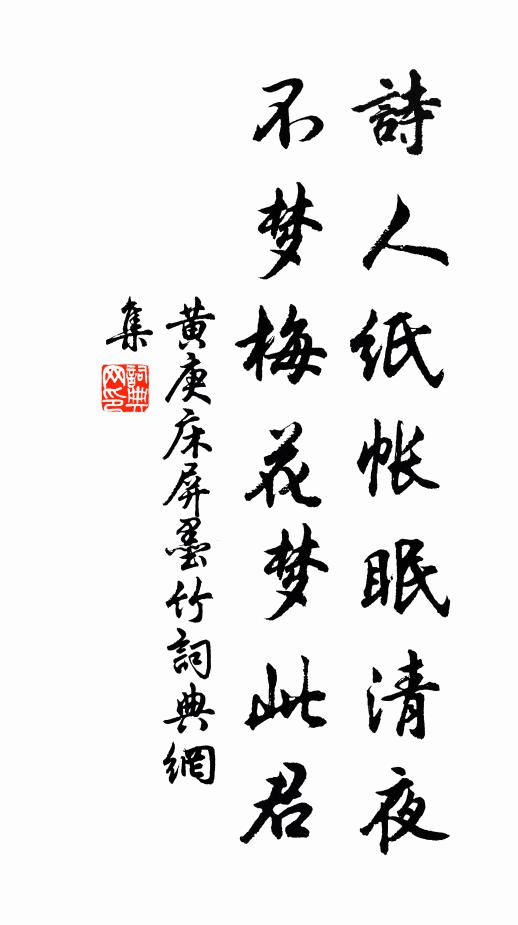 詩人紙帳眠清夜
不梦梅花梦此君
黄庚床屏墨竹詞典網
集
詞典
网印